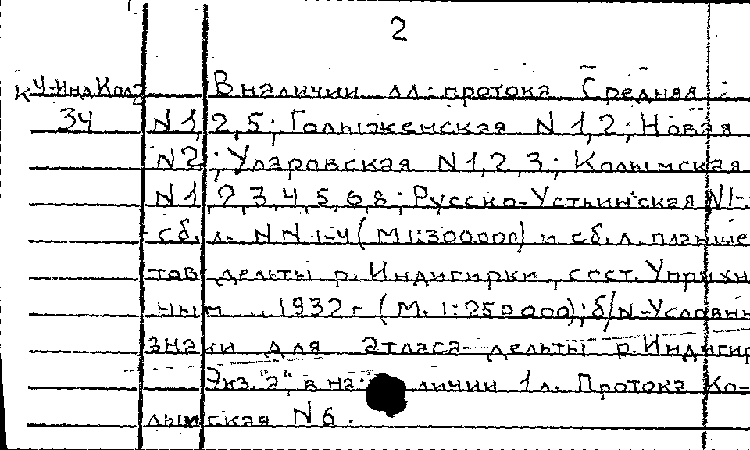 2
К У-Инд Кол В наличии лл: протока Средняя :
34 N 1, 2, 5; Голыженская N 1, 2; Новая
N 2; Уларовская N 1, 2, 3; Колымская
N 1, 2, 3, 4, 5, 6, 8; Русско-Устьинская N 1-
сб. л. N N 1-4 (М 1:300000) и сб. л. планше
тов дельты р. Индигирки, сост. Уприхи
ным 1932 г (М. 1:250000); б/N-Условны
знаки для атласа дельты р. Индигир
Экз. "2", в наличии 1 л. Протока Ко-
лымская N 6.